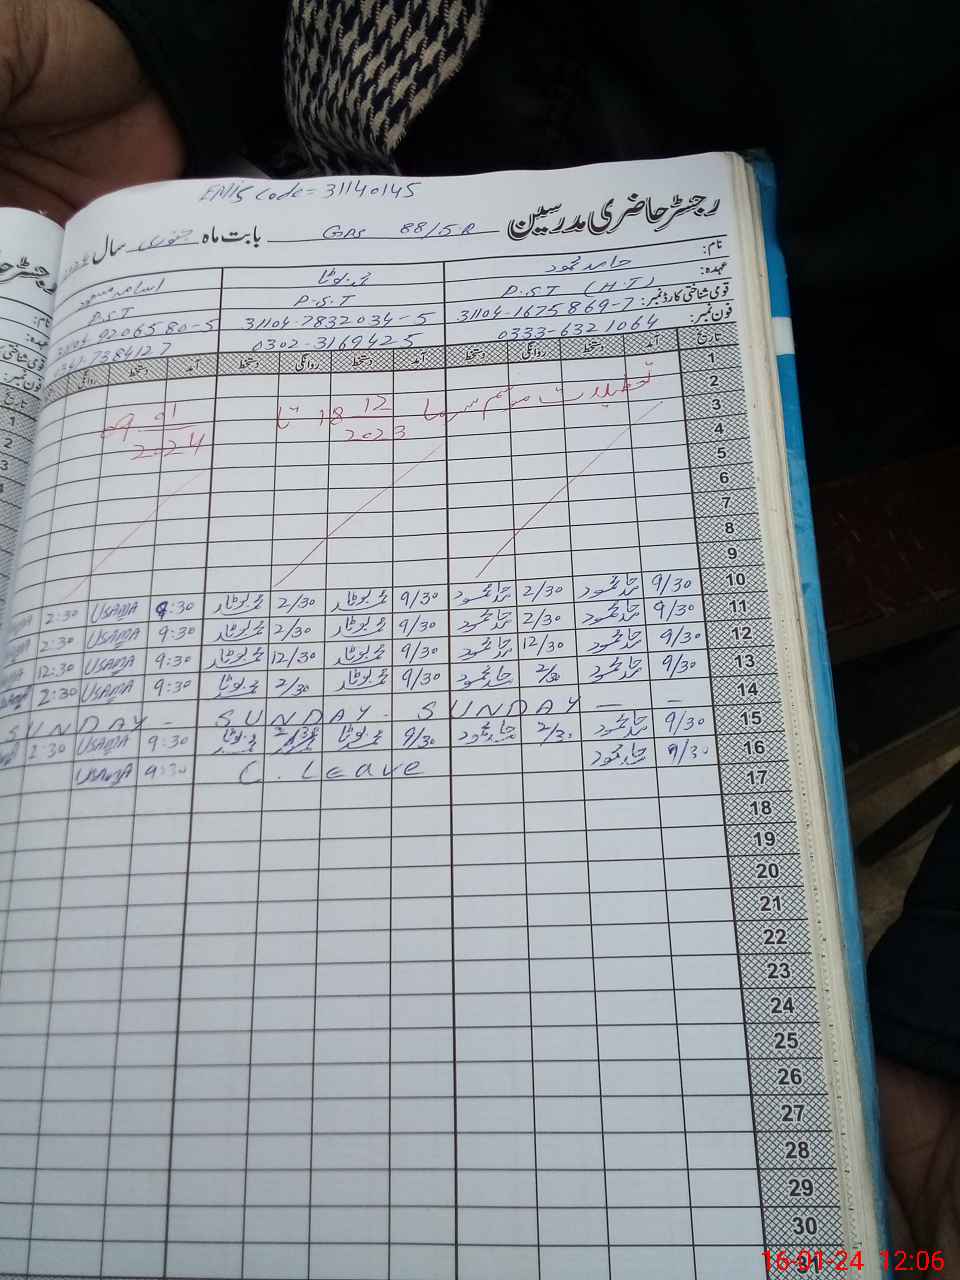 EMIS Code = 31140145
رجسٹر حاضری مدرسین GPS 88/5-R بابت ماہ جنوری سال
نام: حامد محمود اسامہ مسعود
عہدہ: P.S.T (H.T) P.S.T P.S.T
قومی شناختی کارڈ نمبر: 31104-1675869-7 31104-7832034-5 31104 9206580-5
فون نمبر: 0333-6321064 0302-3169425 7384127
تاریخ آمد دستخط روانگی دستخط آمد دستخط روانگی دستخط آمد دستخط روانگی
1
2 تعطیلات موسم سرما 18 12 2023 تا 09 01 2024
3
4
5
6
7
8
9
10 9/30 حامد محمود 2/30 حامد محمود 9/30 2/30 9:30 USAMA 2:30
11 9/30 حامد محمود 2/30 حامد محمود 9/30 2/30 9:30 USAMA 2:30
12 9/30 حامد محمود 12/30 حامد محمود 9/30 12/30 9:30 USAMA 12:30
13 9/30 حامد محمود 2/30 حامد محمود 9/30 2/30 9:30 USAMA 2:30
14 SUNDAY - SUNDAY - SUNDAY - -
15 9/30 حامد محمود 2/30 حامد محمود 9/30 2/30 9:30 USAMA 2:30
16 9/30 حامد محمود C. Leave 9:30 USAMA
17
18
19
20
21
22
23
24
25
26
27
28
29
30
31
16-01-24 12:06